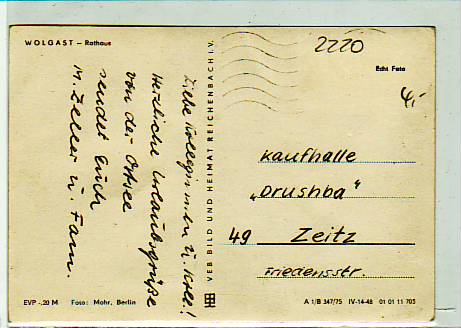 WOLGAST – Rathaus
Liebe Kolleginnen u. Koll.!
Herzliche Urlaubsgrüße
von der Ostsee
sendet Euch
M. Zeller u. Fam.
EVP -,20 M Foto: Mohr, Berlin
VEB BILD UND HEIMAT REICHENBACH i. V.
2220
Echt Foto
Kaufhalle
„Drushba"
49 Zeitz
Friedensstr.
A 1/B 347/75 IV-14-48 01 01 11 703